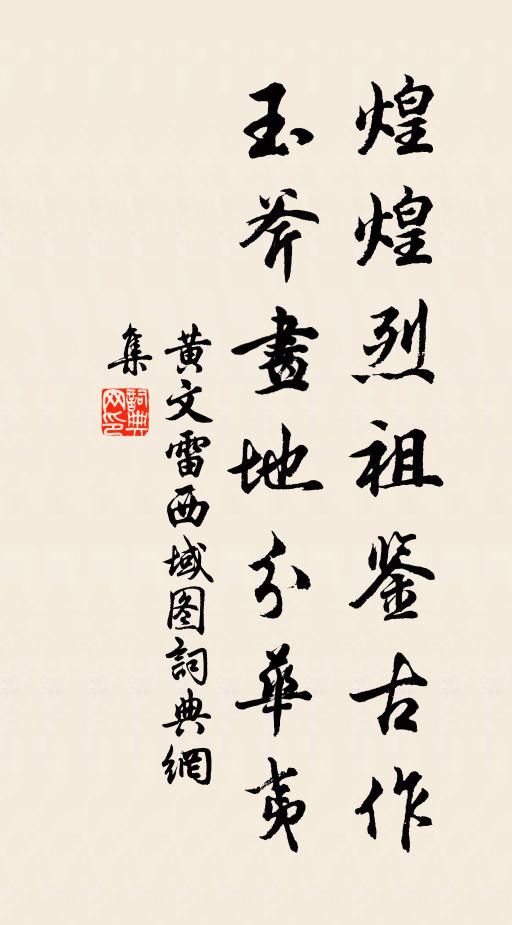 煌煌烈祖鉴古作
玉斧畫地分華夷
黄文雷西域图詞典網
集
詞典
网印